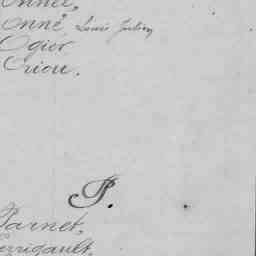 onné, Louis Julien
Ogier
Oriou.
P.
Parnet,
Perrigault,